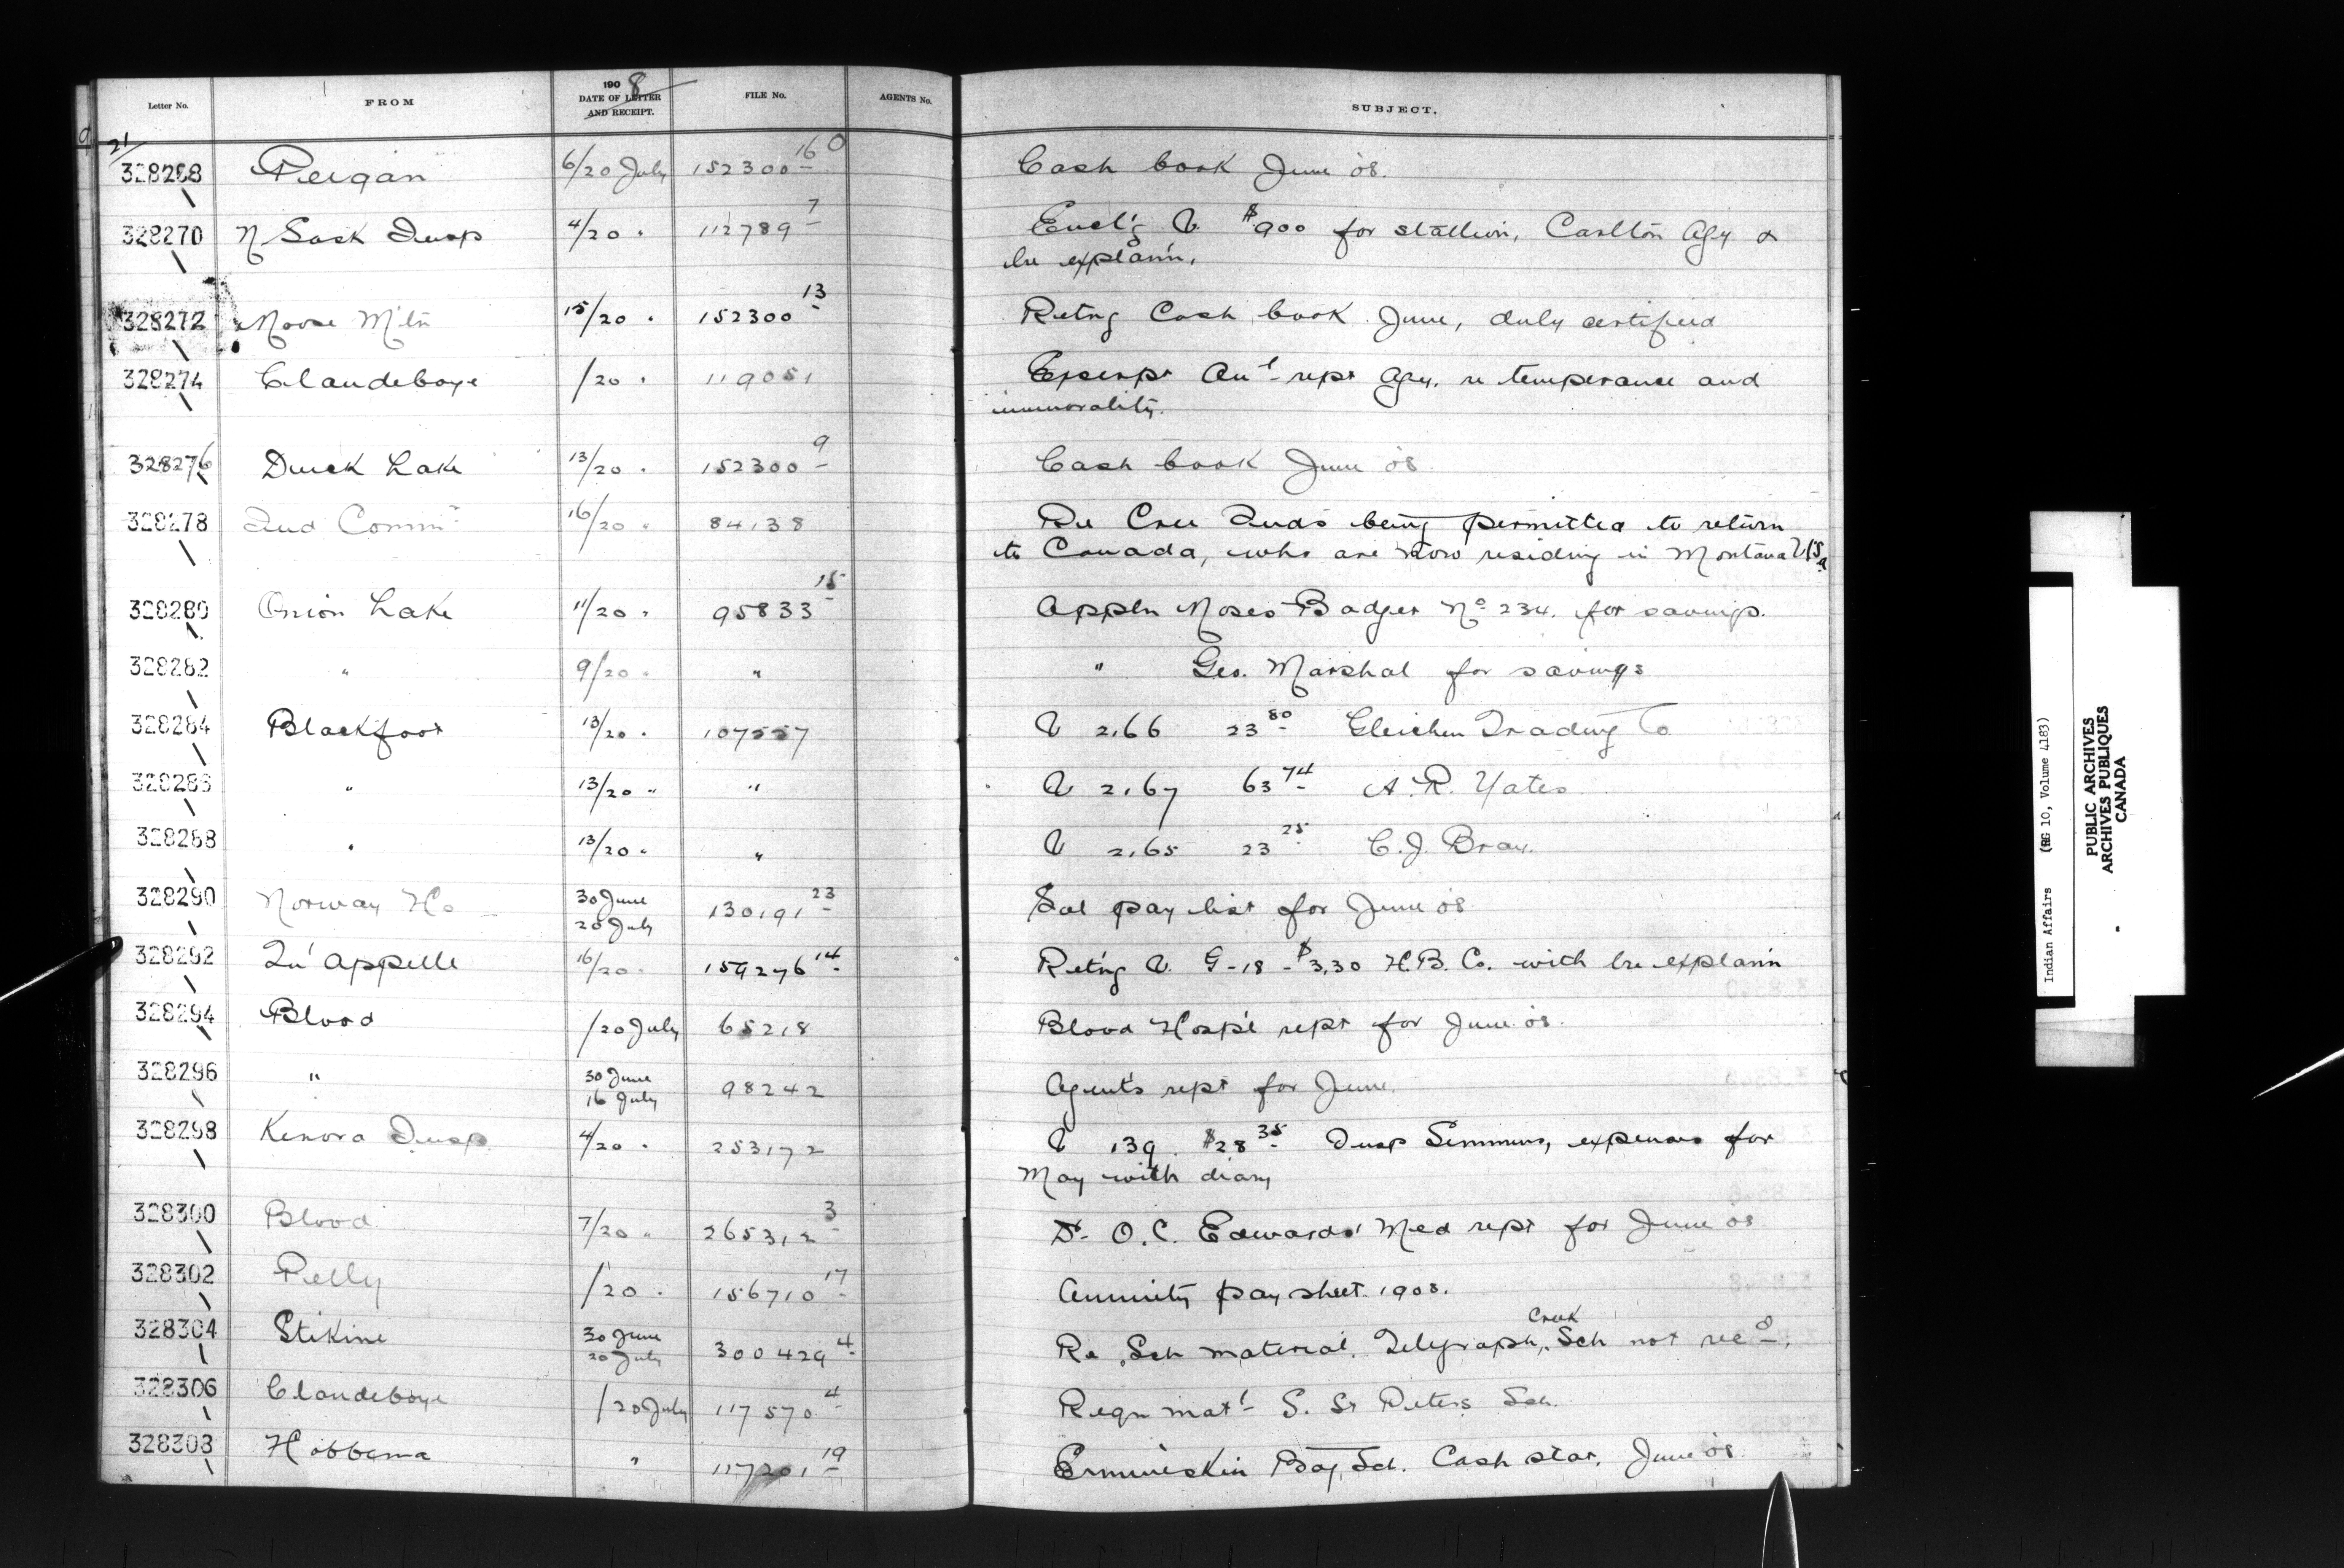 Letter No. FROM 1908 DATE OF LETTER AND RECEIPT. FILE No. AGENTS No. SUBJECT.
21/
328268 Peigan 6/20 July 152300 16 Cash book June '08.
328270 N Sask Insp 4/20 " 112789 7 Encl'g V. $900 for stallion, Carlton Agy &
lre explan'n.
328272 Moose M'tn 15/20 " 152300 13 Retng Cash book June, duly certified
328274 Clandeboye /20 " 119051 Excerpt An'l rept Agy. re temperance and
immorality.
328276 Duck Lake 13/20 " 152300 9 Cash book June '08
328278 Ind Comm'r 16/20 " 84138 Re Cree Inds being permitted to return
to Canada, who are now residing in Montana USA
328280 Onion Lake 11/20 " 95833 15 Appln Moses Badger No 234. for savings.
328282 " 9/20 " " " Geo. Marshal for savings
328284 Blackfoot 13/20 " 107557 V 2.66 23 80 Gleichen Trading Co
328286 " 13/20 " " V 2.67 63 74 A. R. Yates
328288 " 13/20 " " V 2.65 23 25 C. J. Bray.
328290 Norway Ho 30 June 20 July 130191 23 Sal pay list for June '08
328292 Qu'Appelle 16/20 " 159276 14 Ret'ng V. G-18 - $3.30 H.B. Co. with lre explan'n
328294 Blood /20 July 65218 Blood Hosp'l rept for June '08.
328296 " 30 June 16 July 98242 Agent's rept for June.
328298 Kenora Insp 4/20 " 253172 V 139. $28 35 Insp Semmens, expenses for
May with diary
328300 Blood 7/20 " 265312 3 Dr O.C. Edwards' Med rept for June '08
328302 Pelly /20 " 156710 17 Annuity pay sheet 1908.
328304 Stikine 30 June 20 July 300429 4 Re Sch material, Telegraph Creek Sch not rec'd.
328306 Clandeboye /20 July 117570 4 Reqn mat'l S. St Peters Sch.
328308 Hobbema " 117201 19 Ermineskin Bdg Sch. Cash stat. June '08.
Indian Affairs (RG 10, Volume 4183)
PUBLIC ARCHIVES
ARCHIVES PUBLIQUES
CANADA